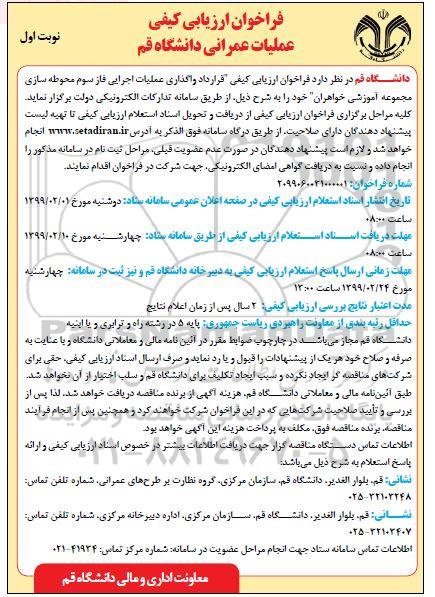 فراخوان ارزیابی کیفی
عملیات عمرانی دانشگاه قم
نوبت اول
دانشگاه قم در نظر دارد فراخوان ارزیابی کیفی "قرارداد واگذاری عملیات اجرایی فاز سوم محوطه سازی
مجموعه آموزشی خواهران" خود را به شرح ذیل، از طریق سامانه تدارکات الکترونیکی دولت برگزار نماید.
کلیه مراحل برگزاری فراخوان ارزیابی کیفی از دریافت و تحویل اسناد استعلام ارزیابی کیفی تا تهیه لیست
پیشنهاد دهندگان دارای صلاحیت، از طریق درگاه سامانه فوق الذکر به آدرس www.setadiran.ir انجام
خواهد شد و لازم است پیشنهاد دهندگان در صورت عدم عضویت قبلی، مراحل ثبت نام در سامانه مذکور را
انجام داده و نسبت به دریافت گواهی امضای الکترونیکی، جهت شرکت در فراخوان اقدام نمایند.
شماره فراخوان: ۲۰۹۹۰۶۰۰۳۱۰۰۰۰۰۱
تاریخ انتشار اسناد استعلام ارزیابی کیفی در صفحه اعلان عمومی سامانه ستاد: دوشنبه مورخ ۱۳۹۹/۰۲/۰۱
ساعت ۰۸:۰۰
مهلت دریافت اسناد استعلام ارزیابی کیفی از طریق سامانه ستاد: چهارشنبه مورخ ۱۳۹۹/۰۲/۱۰
ساعت ۰۸:۰۰
مهلت زمانی ارسال پاسخ استعلام ارزیابی کیفی به دبیرخانه دانشگاه قم و نیز ثبت در سامانه: چهارشنبه
مورخ ۱۳۹۹/۰۲/۲۴ ساعت ۱۳:۰۰
مدت اعتبار نتایج بررسی ارزیابی کیفی: ۲ سال پس از زمان اعلام نتایج
حداقل رتبه بندی از معاونت راهبردی ریاست جمهوری: پایه ۵ در رشته راه و ترابری و یا ابنیه
دانشگاه قم مجاز می‌باشد در چارچوب ضوابط مقرر در آئین نامه مالی و معاملاتی دانشگاه و با عنایت به
صرفه و صلاح خود هر یک از پیشنهادات را قبول و یا رد نماید و صرف ارسال اسناد ارزیابی کیفی، حقی برای
شرکت‌های مناقصه گر ایجاد نکرده و سبب ایجاد تکلیف برای دانشگاه قم و سلب اختیار از آن نخواهد شد.
طبق آئین‌نامه مالی و معاملاتی دانشگاه قم، هزینه آگهی از برنده مناقصه دریافت خواهد شد. لذا پس از
بررسی و تأیید صلاحیت شرکت‌هایی که در این فراخوان شرکت خواهند کرد و همچنین پس از انجام فرآیند
مناقصه، برنده مناقصه فوق، مکلف به پرداخت هزینه این آگهی خواهد بود.
اطلاعات تماس دستگاه مناقصه گزار جهت دریافت اطلاعات بیشتر در خصوص اسناد ارزیابی کیفی و ارائه
پاسخ استعلام به شرح ذیل می‌باشد:
نشانی: قم، بلوار الغدیر، دانشگاه قم، سازمان مرکزی، گروه نظارت بر طرح‌های عمرانی، شماره تلفن تماس:
۰۲۵-۳۲۱۰۳۲۴۸
نشانی: قم، بلوار الغدیر، دانشگاه قم، سازمان مرکزی، اداره دبیرخانه مرکزی، شماره تلفن تماس:
۰۲۵-۳۲۱۰۳۴۰۷
اطلاعات تماس سامانه ستاد جهت انجام مراحل عضویت در سامانه: شماره مرکز تماس: ۴۱۹۳۴-۰۲۱
معاونت اداری و مالی دانشگاه قم